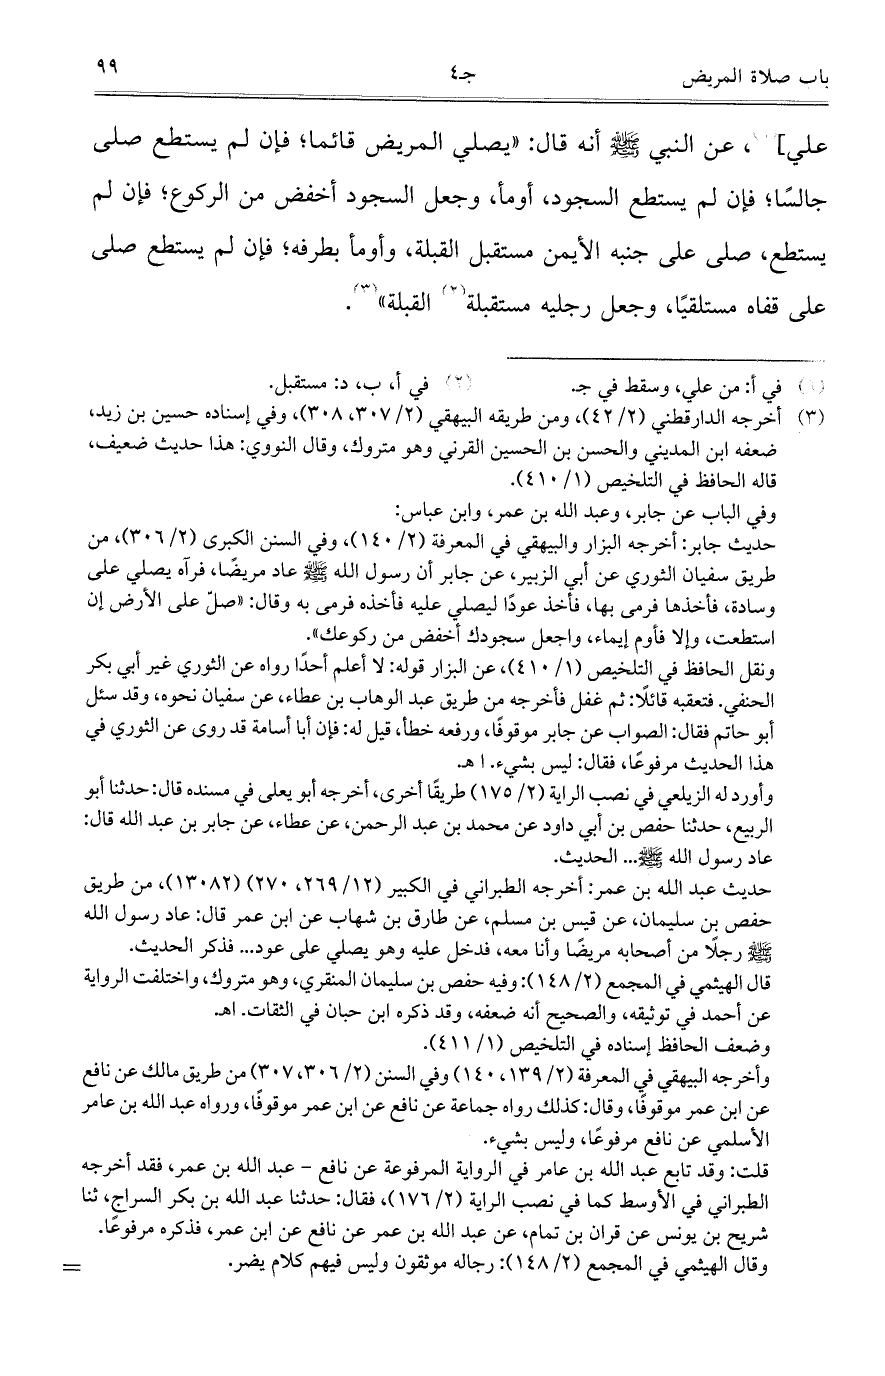 باب صلاة المريض جـ٤ ٩٩
علي] ، عن النبي ﷺ أنه قال: «يصلي المريض قائما؛ فإن لم يستطع صلى
جالسًا؛ فإن لم يستطع السجود، أومأ، وجعل السجود أخفض من الركوع؛ فإن لم
يستطع، صلى على جنبه الأيمن مستقبل القبلة، وأومأ بطرفه؛ فإن لم يستطع صلى
على قفاه مستلقيًا، وجعل رجليه مستقبلة(٢) القبلة»(٣).
(١) في أ: من علي، وسقط في جـ. (٢) في أ، ب، د: مستقبل.
(٣) أخرجه الدارقطني (٢/ ٤٢)، ومن طريقه البيهقي (٢/ ٣٠٧، ٣٠٨)، وفي إسناده حسين بن زيد،
ضعفه ابن المديني والحسن بن الحسين القرني وهو متروك، وقال النووي: هذا حديث ضعيف،
قاله الحافظ في التلخيص (١/ ٤١٠).
وفي الباب عن جابر، وعبد الله بن عمر، وابن عباس:
حديث جابر: أخرجه البزار والبيهقي في المعرفة (٢/ ١٤٠)، وفي السنن الكبرى (٢/ ٣٠٦)، من
طريق سفيان الثوري عن أبي الزبير، عن جابر أن رسول الله ﷺ عاد مريضًا، فرآه يصلي على
وسادة، فأخذها فرمى بها، فأخذ عودًا ليصلي عليه فأخذه فرمى به وقال: «صلّ على الأرض إن
استطعت، وإلا فأوم إيماء، واجعل سجودك أخفض من ركوعك».
ونقل الحافظ في التلخيص (١/ ٤١٠)، عن البزار قوله: لا أعلم أحدًا رواه عن الثوري غير أبي بكر
الحنفي. فتعقبه قائلًا: ثم غفل فأخرجه من طريق عبد الوهاب بن عطاء، عن سفيان نحوه، وقد سئل
أبو حاتم فقال: الصواب عن جابر موقوفًا، ورفعه خطأ، قيل له: فإن أبا أسامة قد روى عن الثوري في
هذا الحديث مرفوعًا، فقال: ليس بشيء. ا هـ.
وأورد له الزيلعي في نصب الراية (٢/ ١٧٥) طريقًا أخرى، أخرجه أبو يعلى في مسنده قال: حدثنا أبو
الربيع، حدثنا حفص بن أبي داود عن محمد بن عبد الرحمن، عن عطاء، عن جابر بن عبد الله قال:
عاد رسول الله ﷺ... الحديث.
حديث عبد الله بن عمر: أخرجه الطبراني في الكبير (١٢/ ٢٦٩، ٢٧٠) (١٣٠٨٢)، من طريق
حفص بن سليمان، عن قيس بن مسلم، عن طارق بن شهاب عن ابن عمر قال: عاد رسول الله
ﷺ رجلًا من أصحابه مريضًا وأنا معه، فدخل عليه وهو يصلي على عود... فذكر الحديث.
قال الهيثمي في المجمع (٢/ ١٤٨): وفيه حفص بن سليمان المنقري، وهو متروك، واختلفت الرواية
عن أحمد في توثيقه، والصحيح أنه ضعفه، وقد ذكره ابن حبان في الثقات. اهـ.
وضعف الحافظ إسناده في التلخيص (١/ ٤١١).
وأخرجه البيهقي في المعرفة (٢/ ١٣٩، ١٤٠) وفي السنن (٢/ ٣٠٦، ٣٠٧) من طريق مالك عن نافع
عن ابن عمر موقوفًا، وقال: كذلك رواه جماعة عن نافع عن ابن عمر موقوفًا، ورواه عبد الله بن عامر
الأسلمي عن نافع مرفوعًا، وليس بشيء.
قلت: وقد تابع عبد الله بن عامر في الرواية المرفوعة عن نافع - عبد الله بن عمر، فقد أخرجه
الطبراني في الأوسط كما في نصب الراية (٢/ ١٧٦)، فقال: حدثنا عبد الله بن بكر السراج، ثنا
شريح بن يونس عن قران بن تمام، عن عبد الله بن عمر عن نافع عن ابن عمر، فذكره مرفوعًا.
وقال الهيثمي في المجمع (٢/ ١٤٨): رجاله موثقون وليس فيهم كلام يضر. =